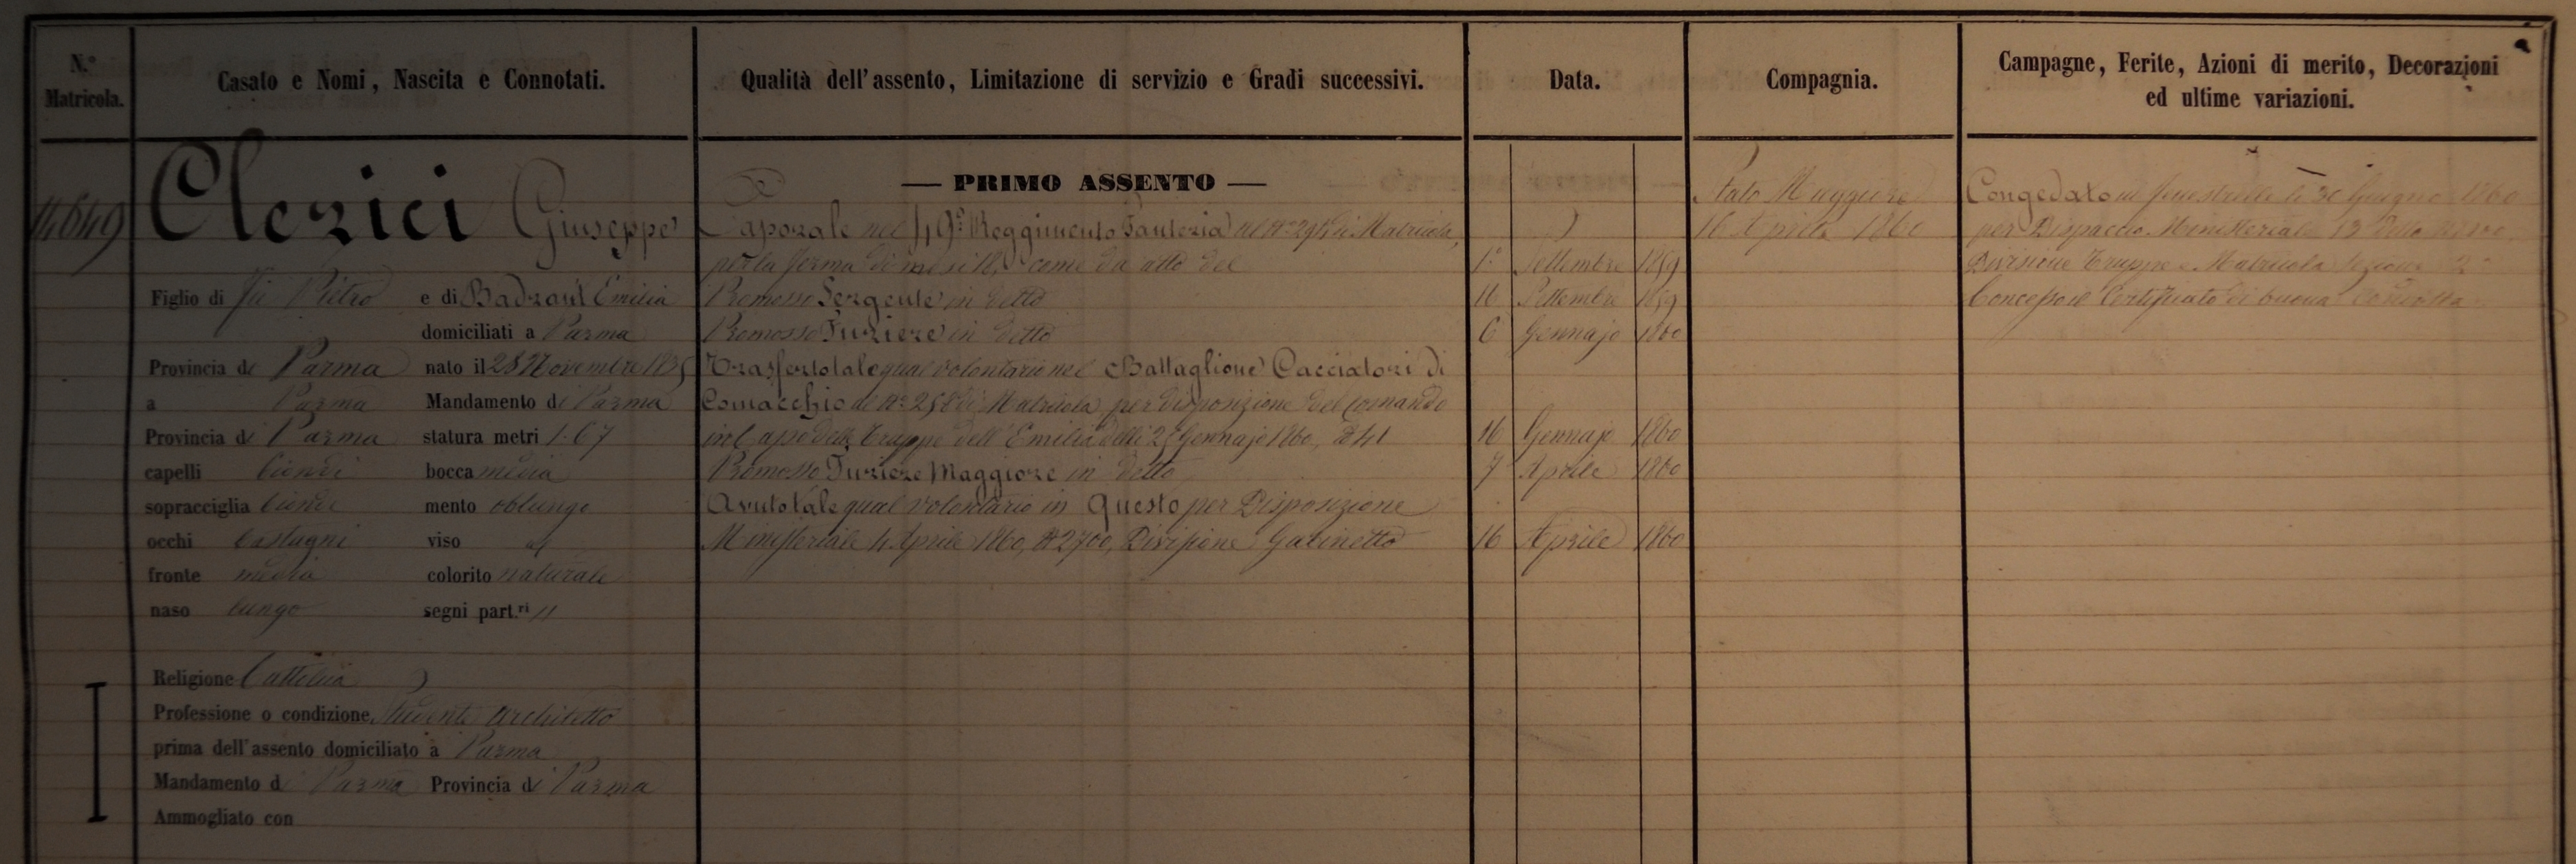 N.° Matricola.
Casato e Nomi, Nascita e Connotati.
Qualità dell'assento, Limitazione di servizio e Gradi successivi.
Data.
Compagnia.
Campagne, Ferite, Azioni di merito, Decorazioni
ed ultime variazioni.
14649
Clerici Giuseppe
Figlio di fu Pietro e di Emilia
domiciliati a Parma
Provincia di Parma nato il 28 Novembre 1835
a Parma Mandamento di Parma
Provincia di Parma statura metri 1.67
capelli biondi bocca media
sopracciglia biondi mento oblungo
occhi castagni viso
fronte media colorito naturale
naso lungo segni part.ri //
Religione Cattolica
Professione o condizione Studente Architetto
prima dell'assento domiciliato a Parma
Mandamento di Parma Provincia di Parma
Ammogliato con
— PRIMO ASSENTO —
Caporale nel 49° Reggimento Fanteria al N° di Matricola,
per la ferma di mesi come da atto del 1° Settembre 1859
Promosso Sergente in detto 16 Settembre 1859
Promosso Furiere in detto 6 Gennajo 1860
Trasferto tale qual volontario nel Battaglione Cacciatori di
Comacchio al N° 258 di Matricola per disposizione del Comando
in Capo delle Truppe dell'Emilia delli Gennajo 1860, N° 41 16 Gennajo 1860
Promosso Furiere Maggiore in detto 7 Aprile 1860
Avuto tale qual volontario in Questo per Disposizione
Ministeriale 4 Aprile 1860, N° 2700, Divisione Gabinetto 16 Aprile 1860
Stato Maggiore
16 Aprile 1860
Congedato in Fenestrelle li 30 Giugno 1860
per Dispaccio Ministeriale 13 detto
Divisione Truppe e Matricola Sezione 2ª
Concesso il Certificato di buona condotta